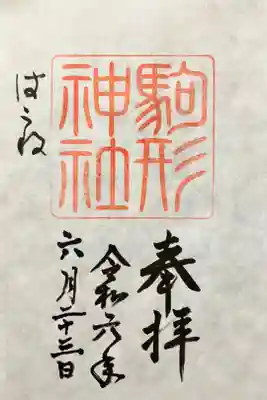 奉拝
駒形
神社
令和六年
六月二十三日
はこね